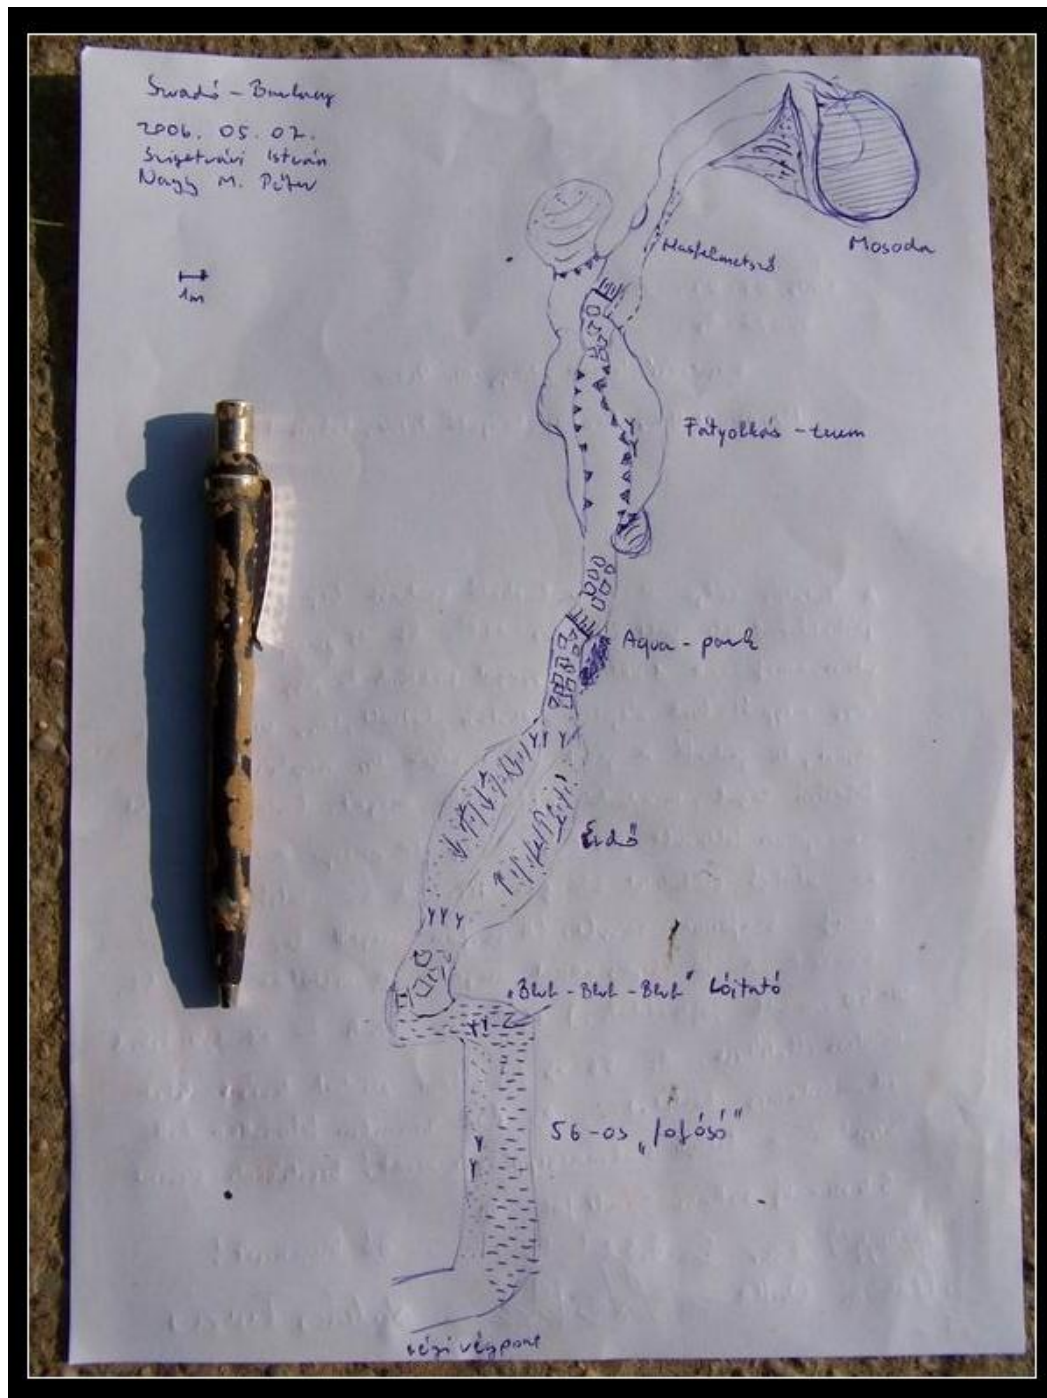 Szuadó - Barlang
2006. 05. 07.
Szigetvári István
Nagy M. Péter
1m
Mosoda
Hasfelmetsző
Fátyolkás - terem
Aqua - park
Erdő
„Blub - Blub - Blub" Lóitató
56-os „fojósó"
régi végpont